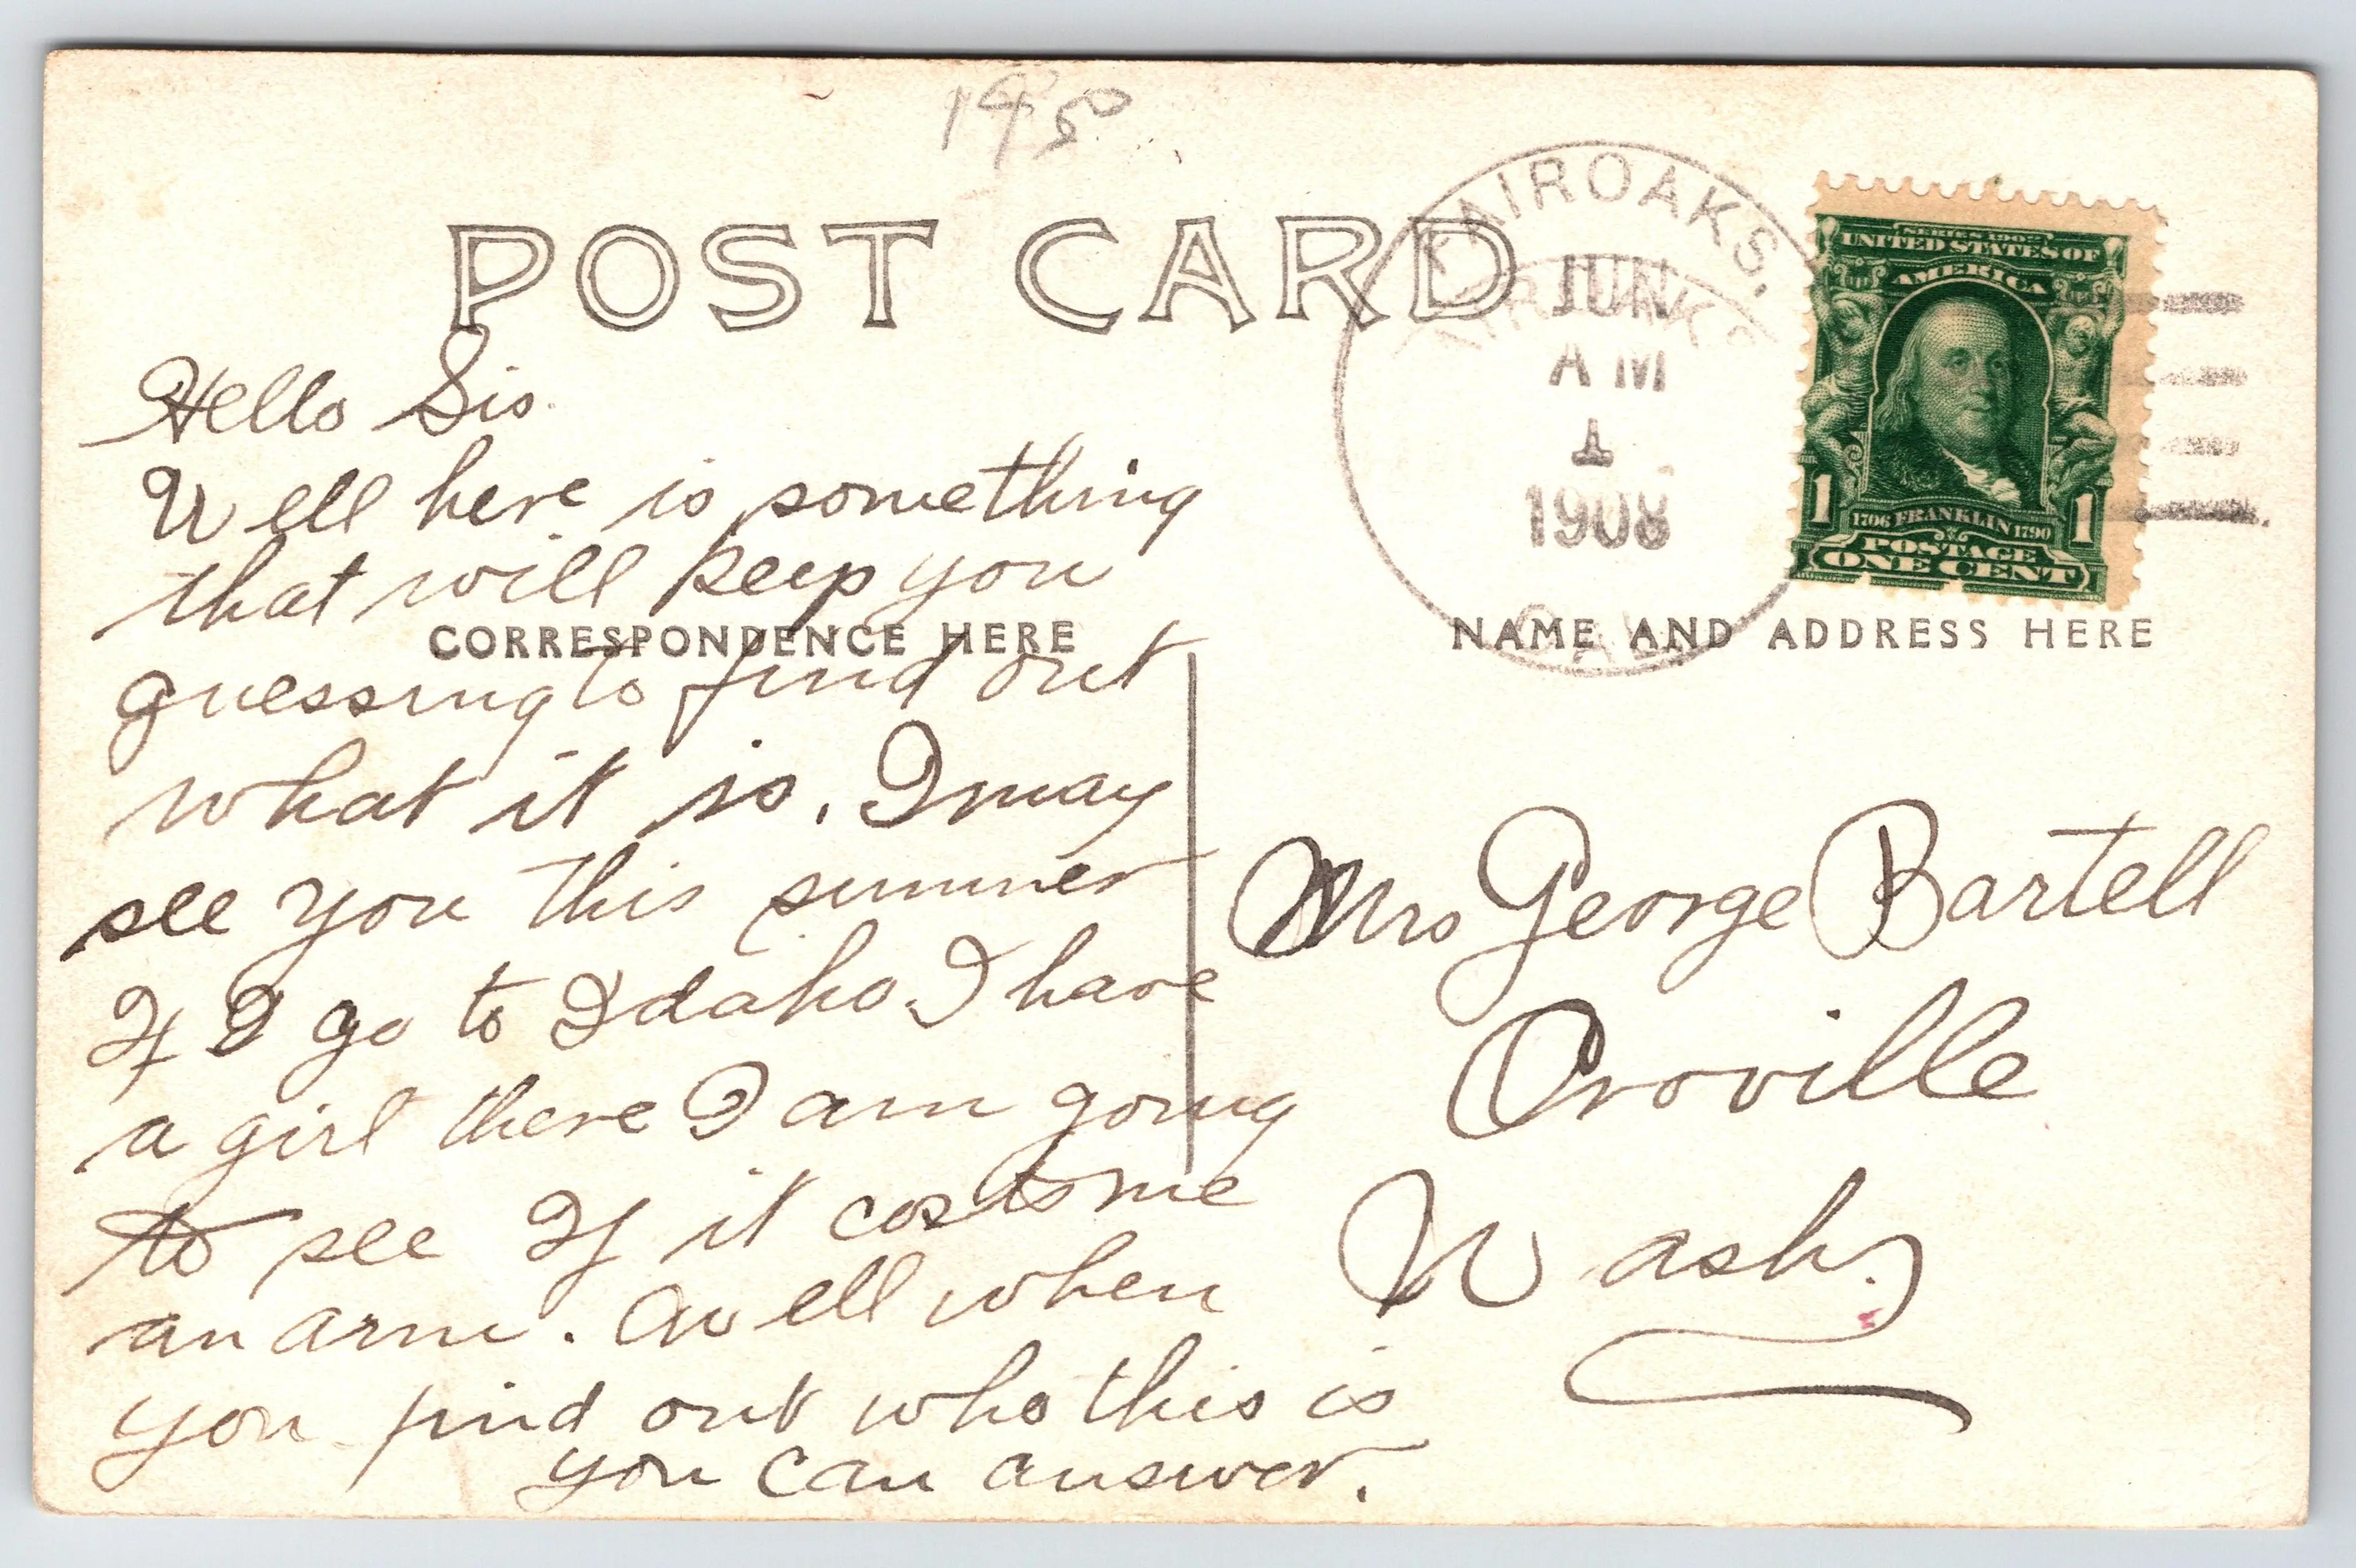 19 50
POST CARD
FAIROAKS.
JUN
AM
1
1908
CAL.
SERIES 1902
UNITED STATES OF
AMERICA
1 1706 FRANKLIN 1790 1
POSTAGE
ONE CENT
CORRESPONDENCE HERE
NAME AND ADDRESS HERE
Hello Sis.
Well here is something
that will keep you
guessing to find out
what it is. I may
see you this summer
If I go to Idaho. I have
a girl there I am going
to see If it costs me
an arm. Well when
you find out who this is
you can answer.
Mrs George Bartell
Oroville
Wash.